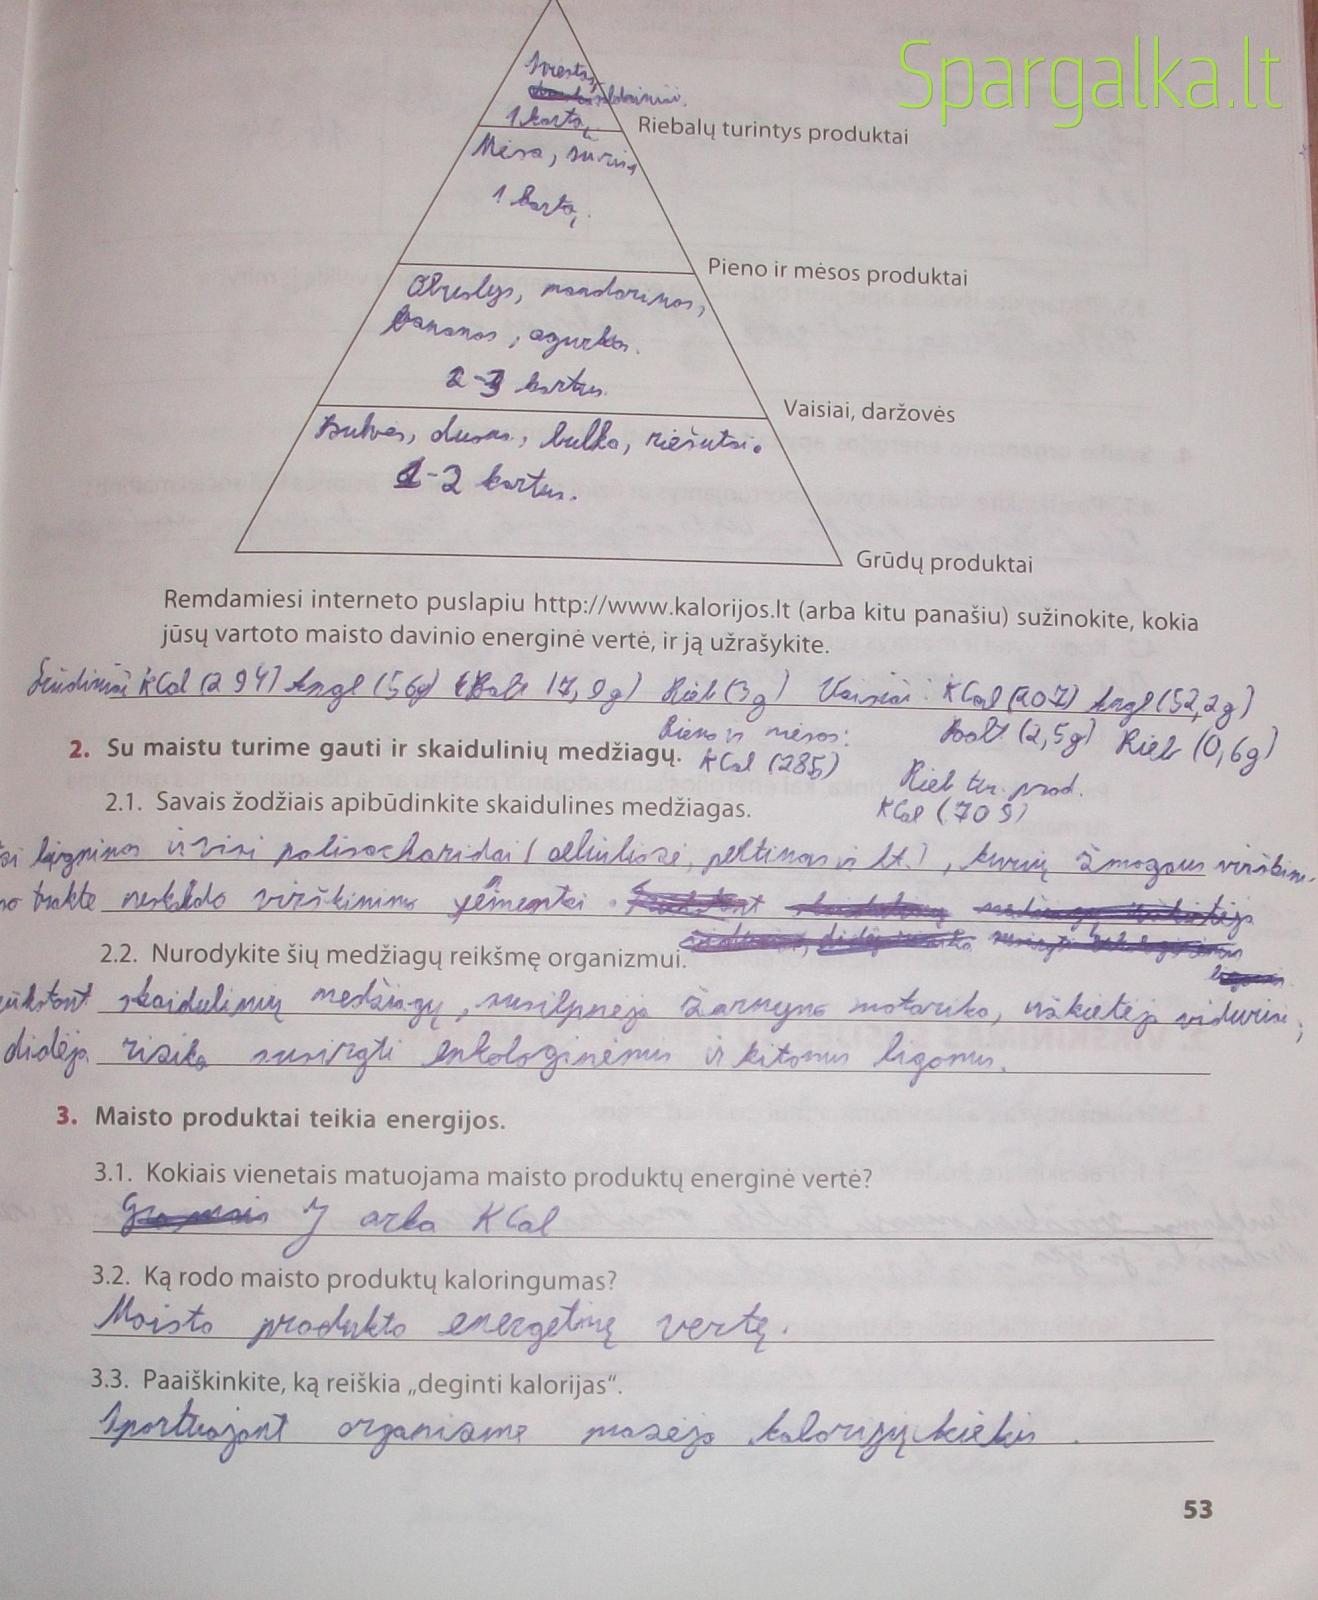 Spargalka.lt
Sviestas,
saldainiai.
1 kartą.
Riebalų turintys produktai
Mėsa, sūris,
1 kartą.
Pieno ir mėsos produktai
Obuolys, mandarinas,
bananas, agurkas.
2-3 kartus.
Vaisiai, daržovės
Bulvės, duona, bulka, riešutai.
1-2 kartus.
Grūdų produktai
Remdamiesi interneto puslapiu http://www.kalorijos.lt (arba kitu panašiu) sužinokite, kokia
jūsų vartoto maisto davinio energinė vertė, ir ją užrašykite.
KCal (294) Angl (56g) Balt 17,9g) Rieb (3g) Vaisiai: KCal (207) Angl (52,2g)
Pieno ir mėsos: Balt (2,5g) Rieb (0,6g)
2. Su maistu turime gauti ir skaidulinių medžiagų. KCal (285)
Rieb tur. prod.
2.1. Savais žodžiais apibūdinkite skaidulines medžiagas. KCal (709)
ligninas ir visi polisacharidai (celiuliozė, pektinas ir kt.), kurių žmogaus virškini-
mo trakte neskaido virškinimo fermentai.
2.2. Nurodykite šių medžiagų reikšmę organizmui.
skaidulinių medžiagų, susilpnėja žarnyno motorika, užkietėja viduriai,
didėja rizika susirgti onkologinėmis ir kitomis ligomis.
3. Maisto produktai teikia energijos.
3.1. Kokiais vienetais matuojama maisto produktų energinė vertė?
J arba KCal
3.2. Ką rodo maisto produktų kaloringumas?
Maisto produkto energetinę vertę.
3.3. Paaiškinkite, ką reiškia „deginti kalorijas“.
Sportuojant organizme mažėja kalorijų kiekis.
53